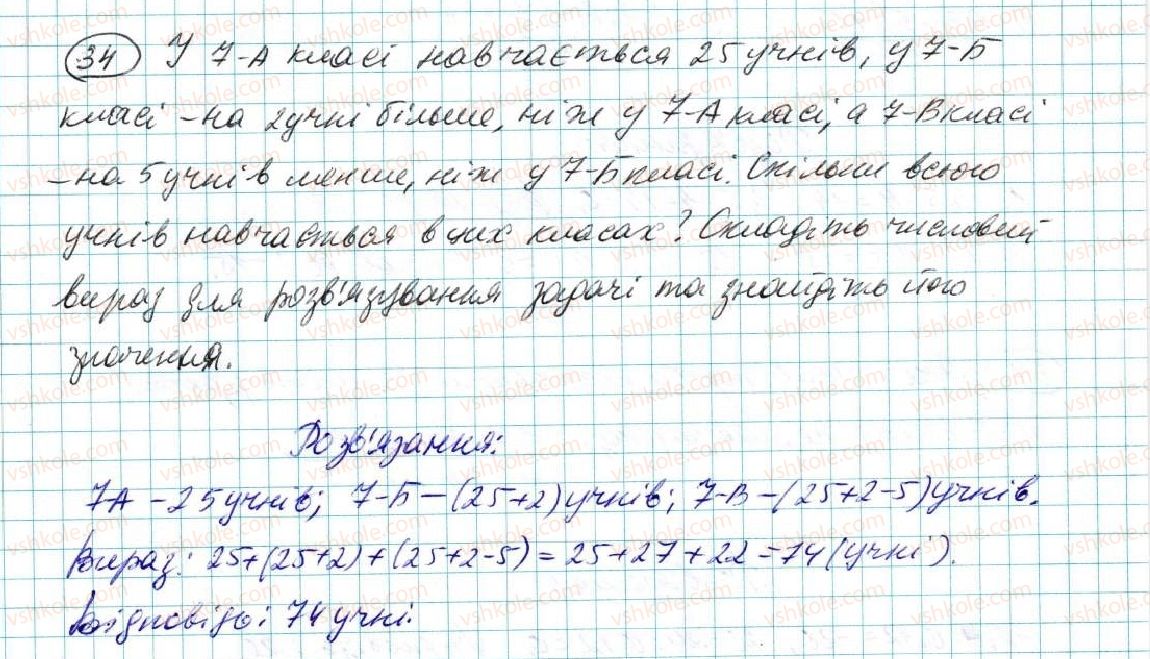 34 У 7-А класі навчається 25 учнів, у 7-Б
класі - на 2 учні більше, ніж у 7-А класі, а 7-В класі
- на 5 учнів менше, ніж у 7-Б класі. Скільки всього
учнів навчається в цих класах? Складіть числовий
вираз для розв'язування задачі та знайдіть його
значення.
Розв'язання:
7А - 25 учнів; 7-Б - (25+2) учнів; 7-В - (25+2-5) учнів.
Вираз: 25+(25+2)+(25+2-5) = 25+27+22 = 74 (учні).
Відповідь: 74 учні.